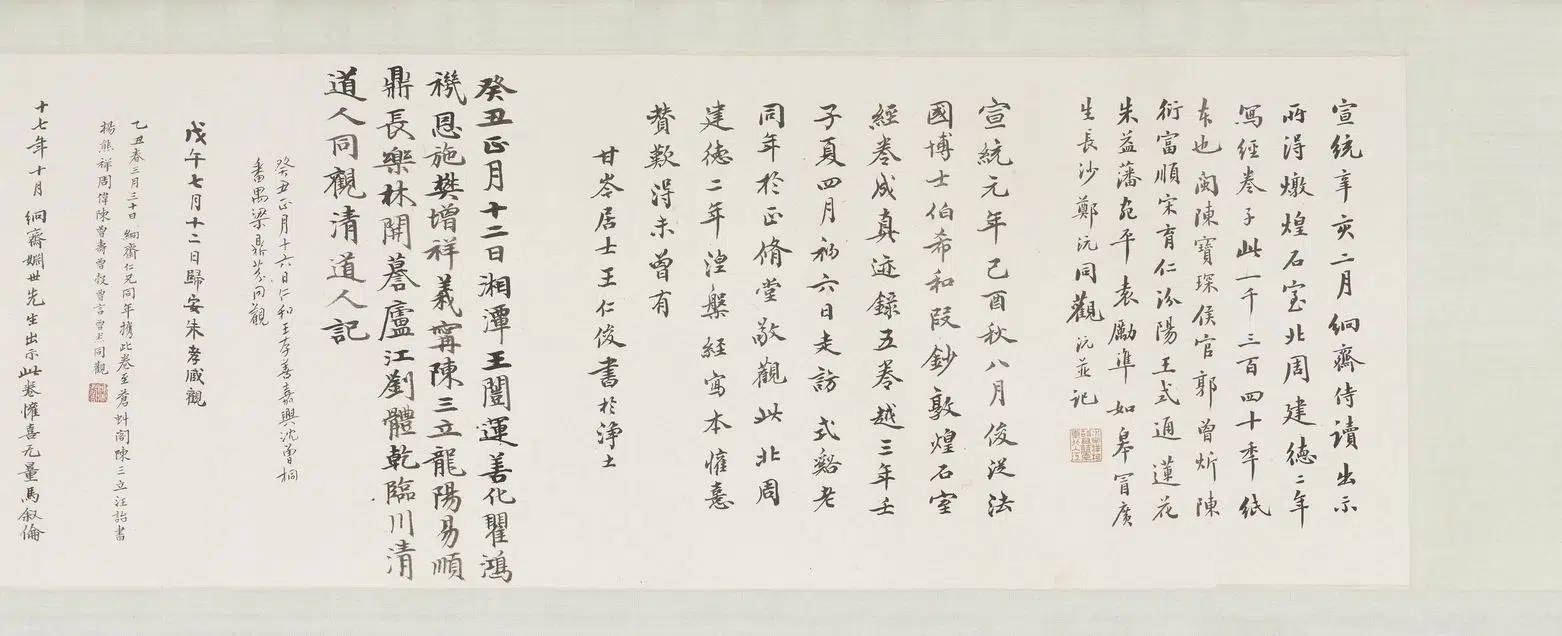 宣統辛亥二月絅齋侍讀出示
所得燉煌石室北周建德二年
寫經卷子此一千三百四十季紙
本也閩陳寶琛侯官郭曾炘陳
衍富順宋育仁汾陽王式通蓮花
朱益藩宛平袁勵準如皋冒廣
生長沙鄭沅同觀沅並記
宣統元年己酉秋八月俊從法
國博士伯希和叚鈔敦煌石室
經卷成真迹錄五卷越三年壬
子夏四月初六日走訪式谿老
同年於正脩堂敬觀此北周
建德二年湼槃經寫本懽憙
贊歎得未曾有
甘岺居士王仁俊書於淨土
癸丑正月十二日湘潭王闓運善化瞿鴻
禨恩施樊增祥義甯陳三立龍陽易順
鼎長樂林開謩廬江劉體乾臨川清
道人同觀清道人記
癸丑正月十六日仁和王存善嘉興沈曾桐
番禺梁鼎芬同觀
戊午七月十二日歸安朱孝臧觀
乙丑春三月三十日絅齋仁兄同年攜此卷至蒼虯閣陳三立汪詒書
楊熊祥周偉陳曾壽曾穀曾言曾同觀
十七年十月絅齋姻世先生出示此卷懽喜无量馬叙倫